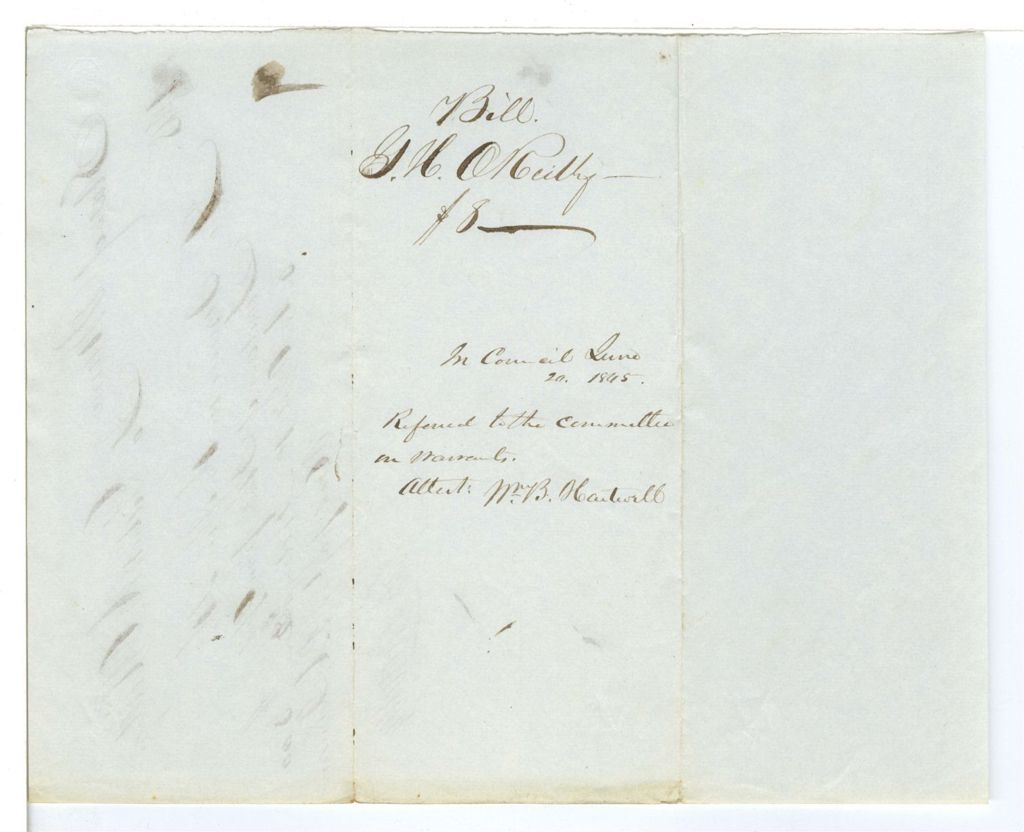 Bill.
G. H. O'Reilly
$8
In Council June
20. 1845.
Referred to the committee
on warrants.
Attest: Wm B. Hartwell